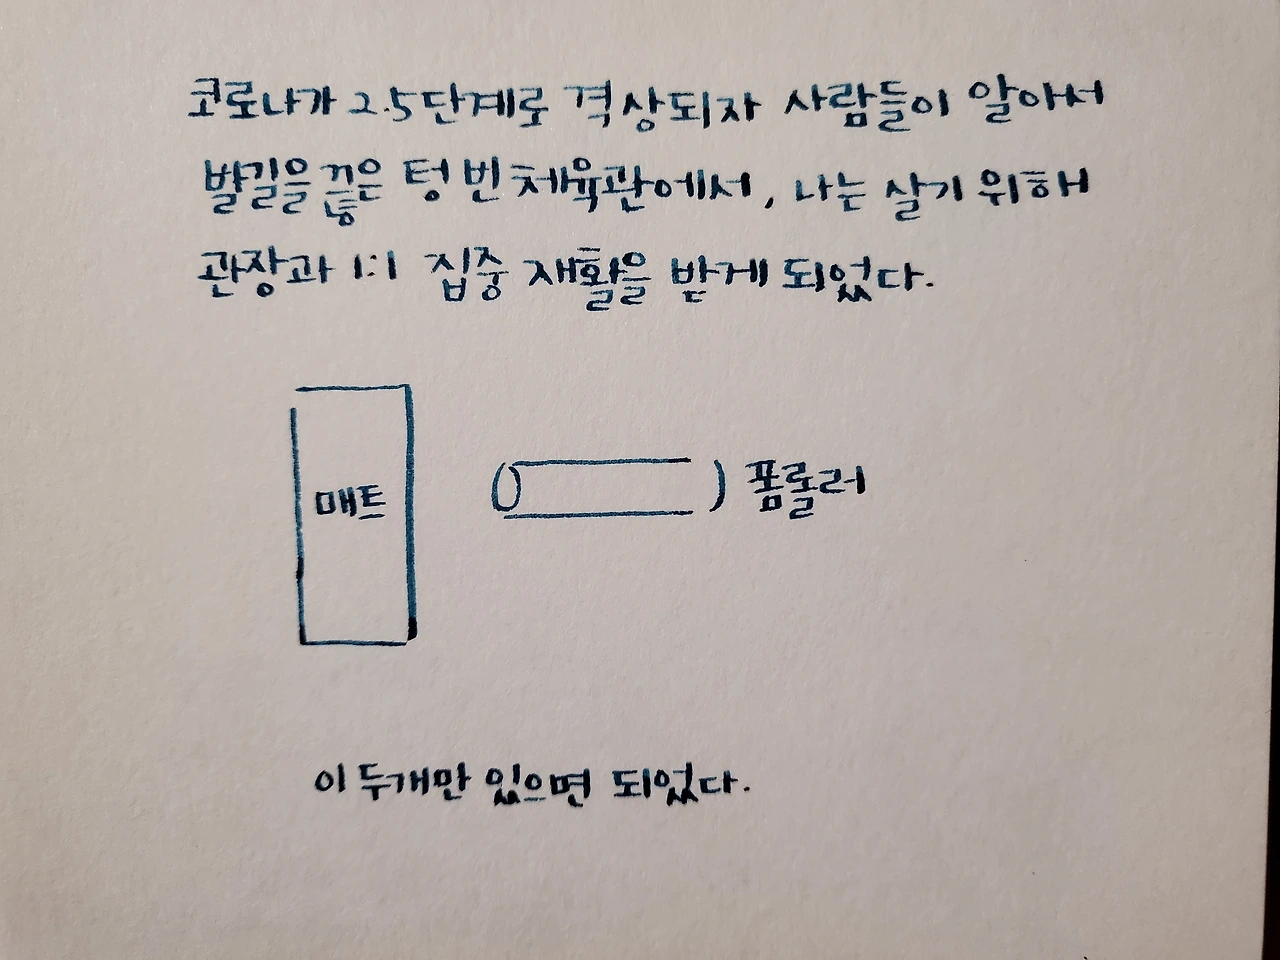 코로나가 2.5단계로 격상되자 사람들이 알아서
발길을 끊은 텅 빈 체육관에서, 나는 살기 위해
관장과 1:1 집중 재활을 받게 되었다.
매트
폼롤러
이 두개만 있으면 되었다.